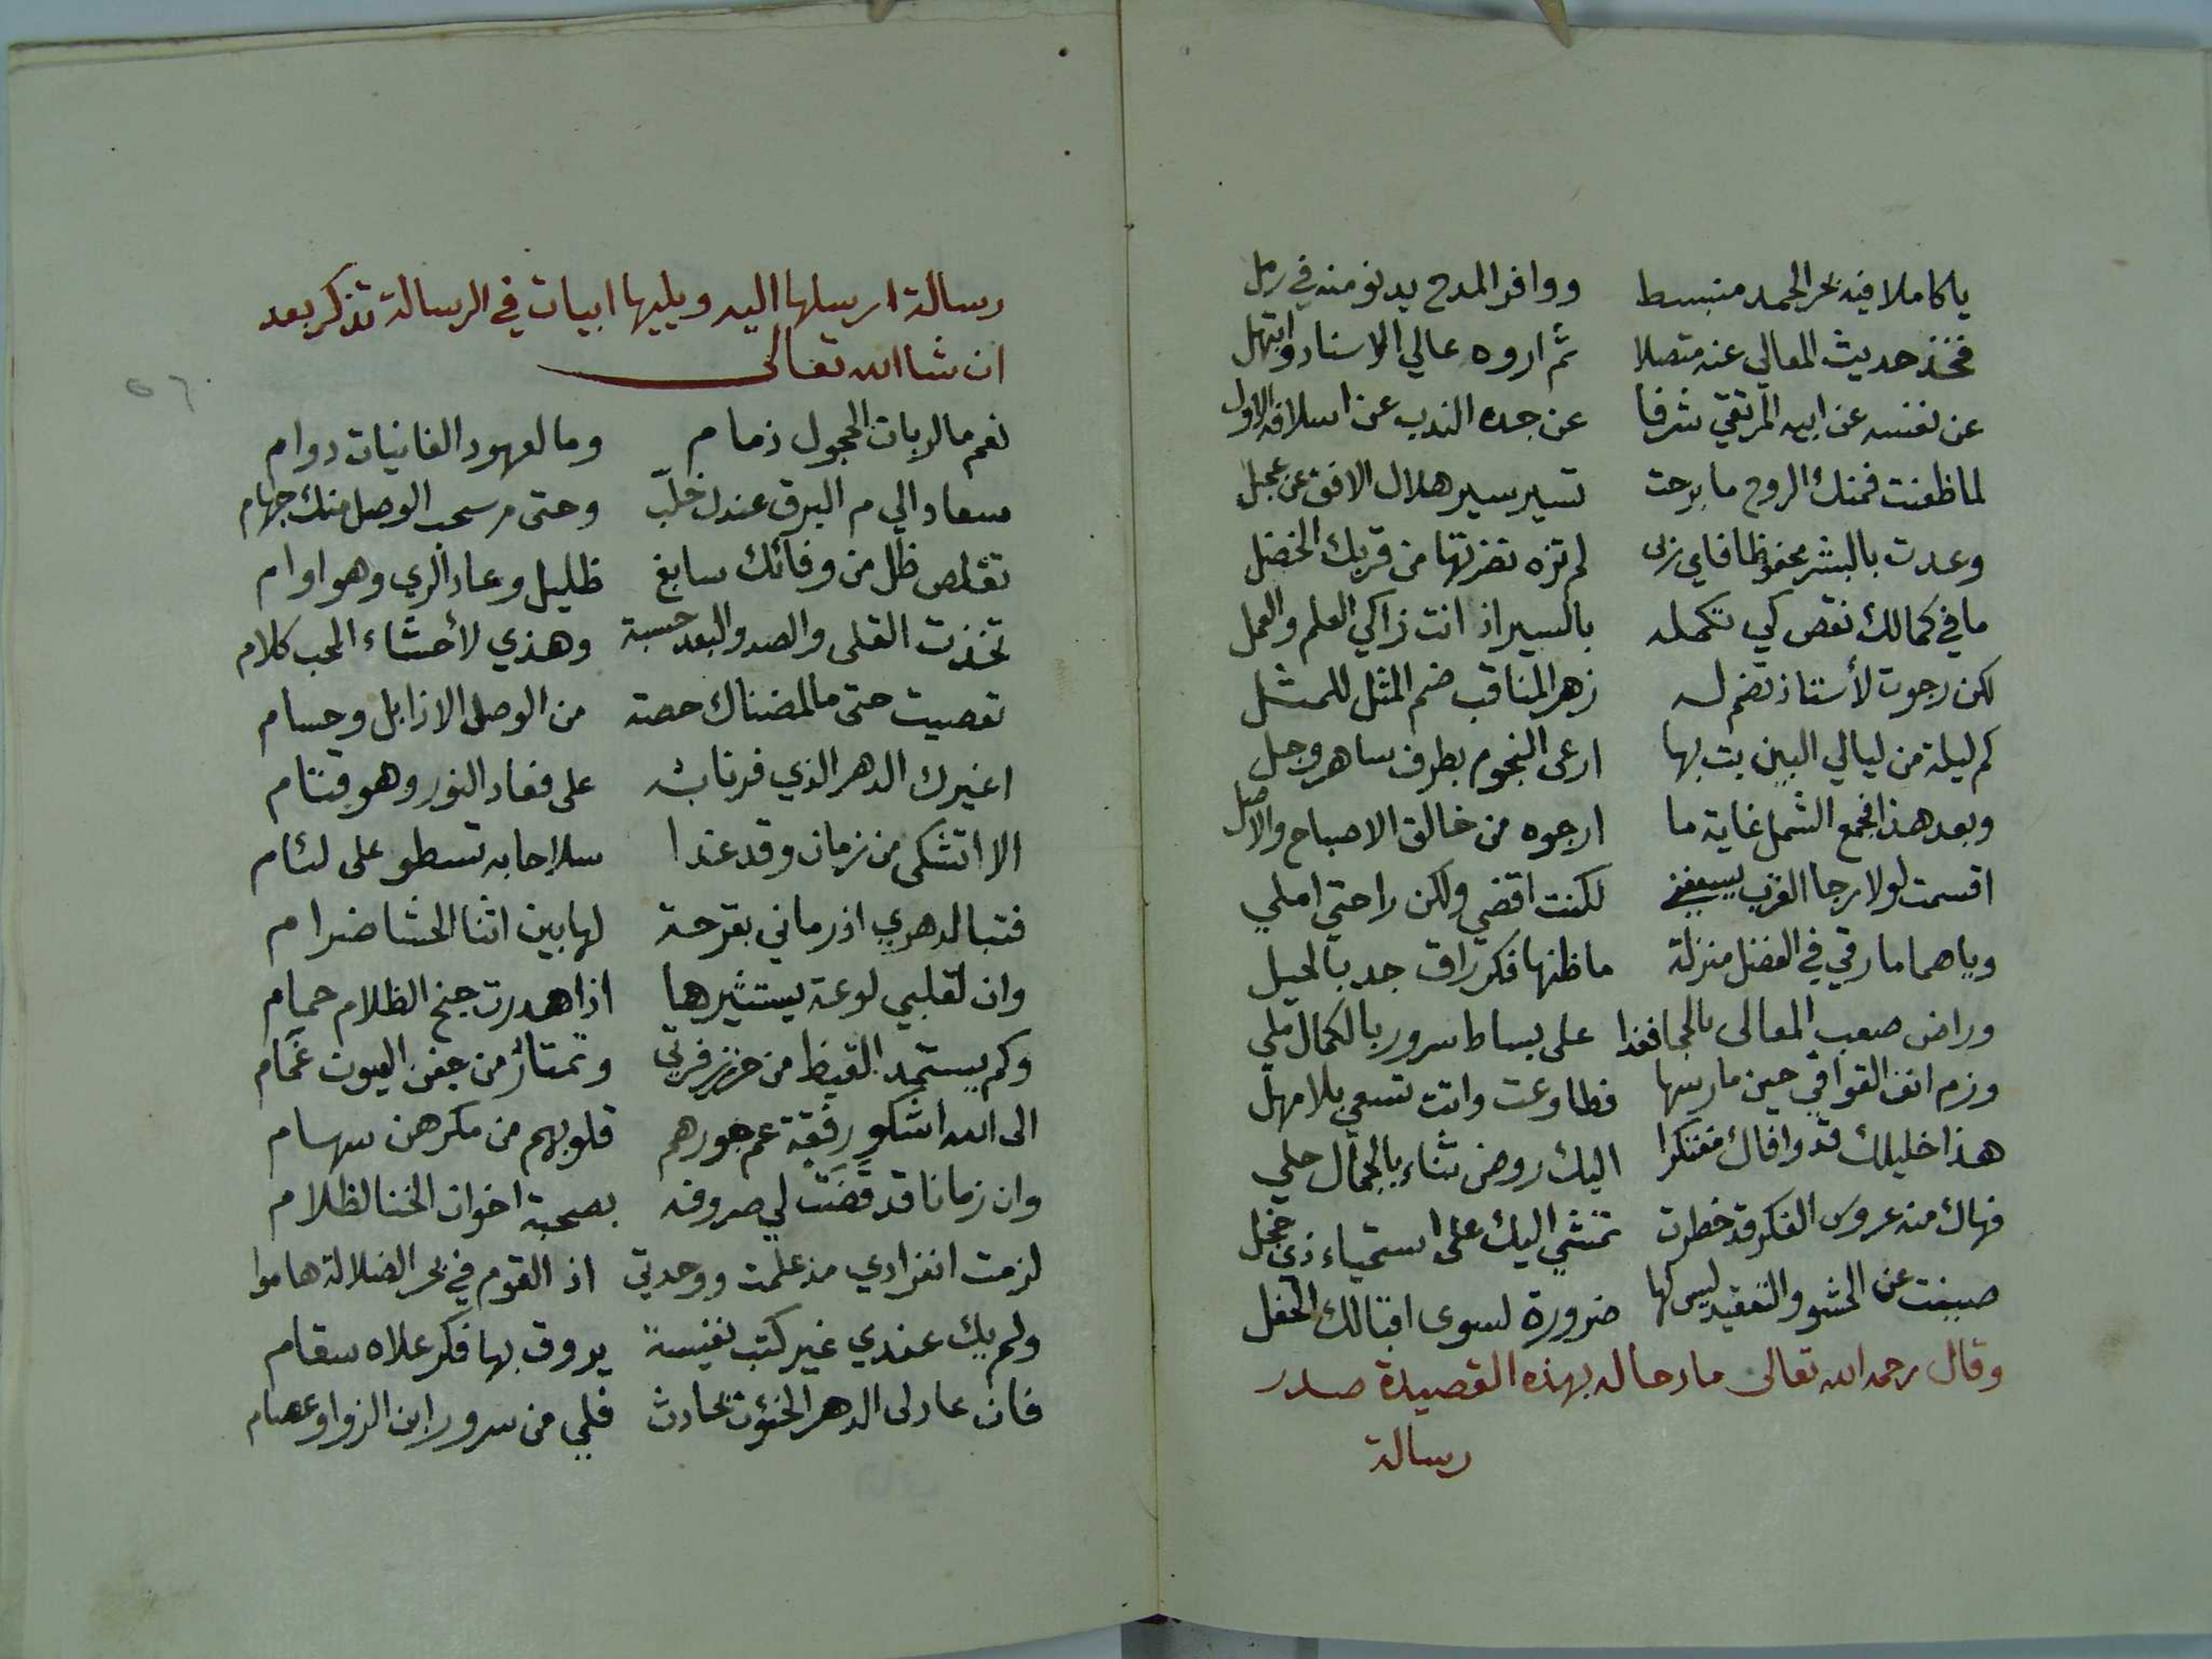 يا كاملا فيه بحر الحمد منبسط ووافر المدح يدنو منه في رمل
فخذ حديث المعالي عنه متصلا ثم اروه عالي الاسناد وابتهل
عن نفسه عن ابيه المرتقي شرفا عن جده الندب عن اسلافه الاول
لما ظعنت فمنك الروح ما برحت تسير سير هلال الافق عن عجل
وعدت بالبشر محفوظا فاي ربى لم تزه نضرتها من قربك الخضل
ما في كمالك نقص كي تكمله بالسير اذ انت زاكي العلم والعمل
لكن رجوت لأستاذ تضم له زهر المناقب ضم المثل للمثل
كم ليلة من ليالي البين بت بها ارعى النجوم بطرف ساهر وجل
وبعد هذا فجمع الشمل غاية ما ارجوه من خالق الاصباح والاصل
اقسمت لولا رجا القرب يسعفني لكنت اقضي ولكن راحتي املي
ويا هماما رقي في الفضل منزلة ما ظنها فكر راق جد بالحيل
وراض صعب المعالى بالحجا فغدا على بساط سرور بالكمال ملي
وزم انف القوافي حين مارسها فطاوعت واتت تسعي بلا مهل
هذا خليلك قد وافاك مفتكرا اليك روض ثناء بالجمال حلي
فهاك منه عروس الفكر قد خطرت تمشي اليك على استحياء ذي خجل
صيغت عن الحشو والتعقيد ليس لها ضرورة لسوى اقبالك الحفل
وقال رحمه الله تعالى مادحا له بهذه القصيدة صدر
رسالة
رسالة ارسلها اليه ويليها ابيات في الرسالة تذكر بعد
ان شا الله تعالى
٥٦
نعم ما لربات الحجول ذمام وما لعهود الغانيات دوام
سعاد الي م البرق عندك خلّب وحتى م سحب الوصل منك جهام
تقلص ظل من وفائك سابغ ظليل وعاد الري وهو اوام
تخذت القلى والصد والبعد حسبة وهذي لأحشاء المحب كلام
تعصيت حتى ما لمضناك حصة من الوصل الا ذابل وحسام
اغيرك الدهر الذي فر نابه على فعاد النور وهو قتام
الا اتشكى من زمان وقد غدا سلاحا به تسطو على لئام
فتبا لدهري اذ رماني بقرحة لها بين اثنا الحشا ضرام
وان لقلبي لوعة يستثيرها اذا هدرت جنح الظلام حمام
وكم يستمد القيظ من حر زفرتي وتمتار من جفن العيون غمام
الى الله اشكو رفقة عم جورهم قلوبهم من مكرهن سهام
وان زمانا قد قَضَتْ لي صروفه بصحبة اخوان الخنا لظلام
لزمت انفرادي مذ علمت ووحدتي اذ القوم في بحر الضلالة هاموا
ولم يك عندي غير كتب نفيسة يروق بها فكر علاه سقام
فان عاد لى الدهر الخئون بحادث فلي من سرور ابن الزواو عصام